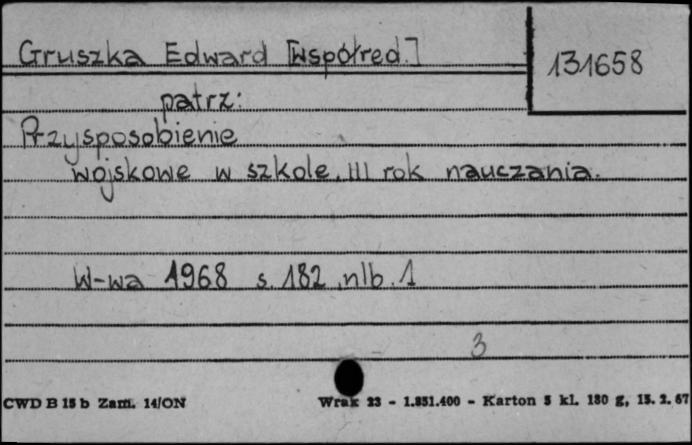 Gruszka Edward [współred.]
131658
patrz:
Przysposobienie
wojskowe w szkole. III rok nauczania.
W-wa 1968 s. 182, nlb. 1
3
CWD B 15 b Zam. 14/ON
Wrak 23 - 1.851.400 - Karton 5 kl. 180 g, 15. 2. 67